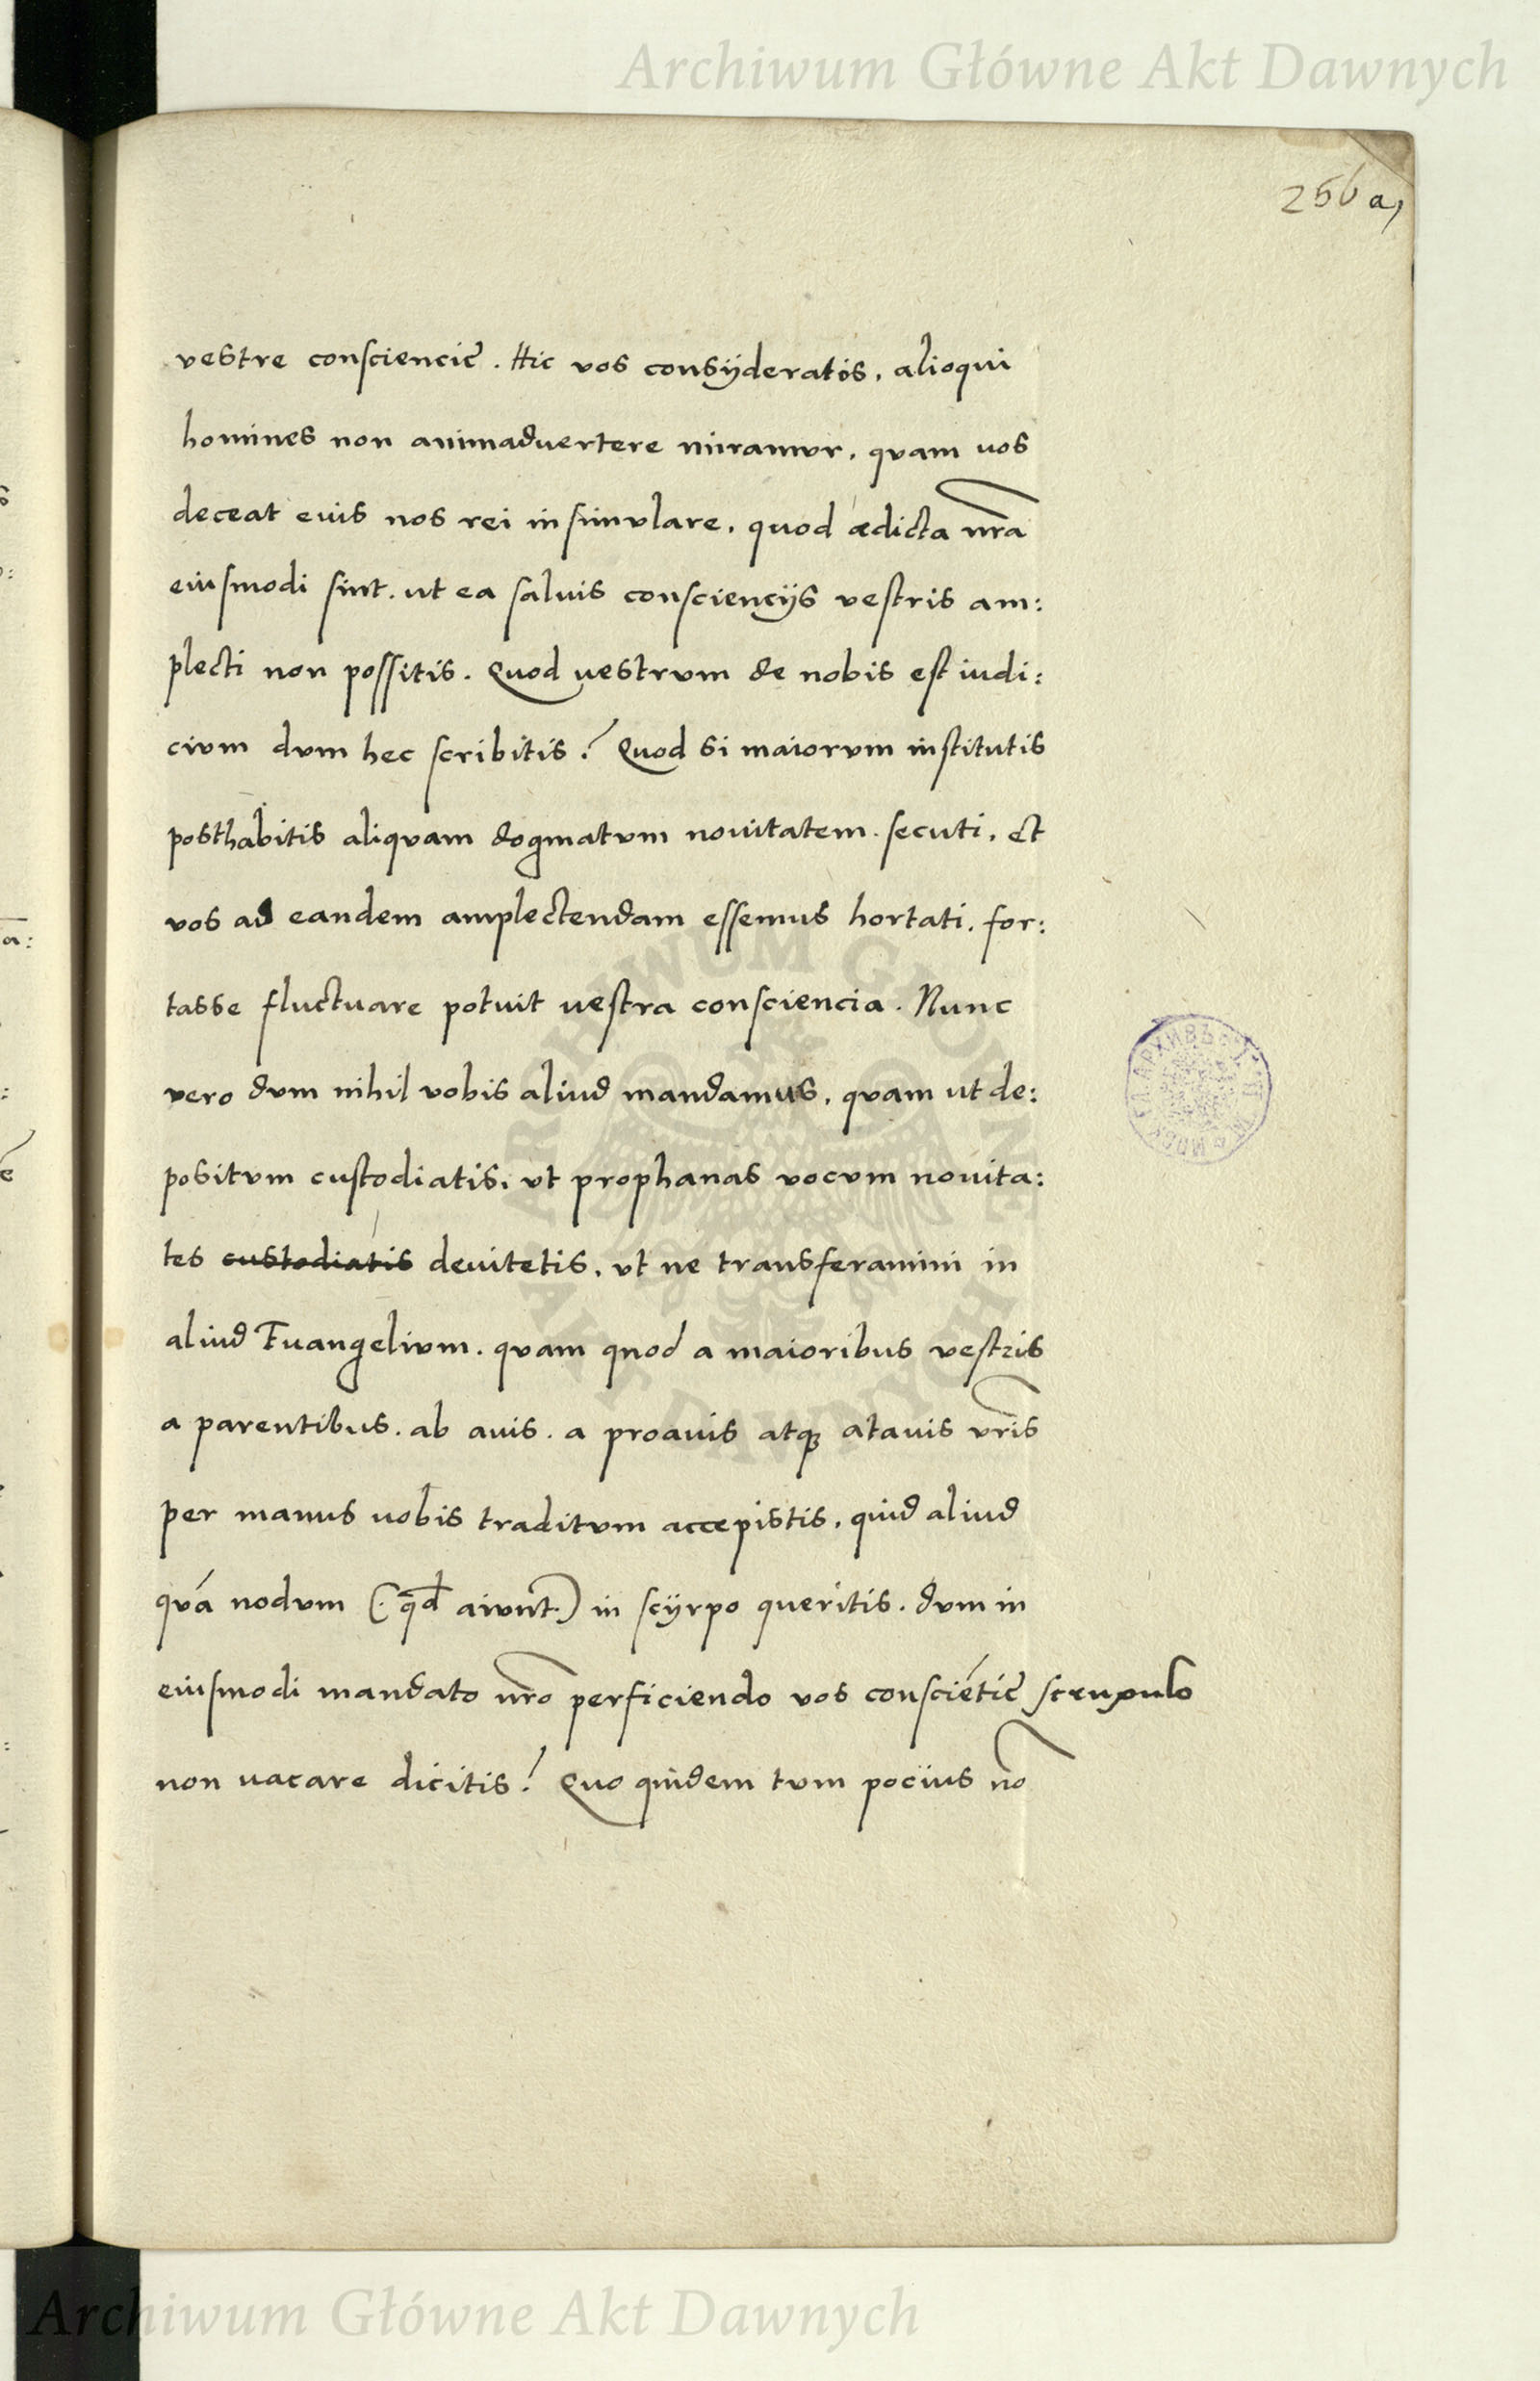 Archiwum Główne Akt Dawnych
256 a,
vestre consciencię. Hic vos consÿderatos, alioqui
homines non animadvertere miramur, quam uos
deceat euis nos rei insimulare, quod ædicta nr̃a
eiusmodi sint. ut ea saluis conscienciis vestris am:
plecti non possitis. Quod uestrum de nobis est iudi:
cium dum hec scribitis? Quod si maiorum institutis
posthabitis aliquam dogmatum nouitatem secuti, et
vos ad eandem amplectendam essemus hortati, for:
tasse fluctuare potuit uestra consciencia. Nunc
vero dum nihil vobis aliud mandamus, quam ut de:
positum custodiatis, ut prophanas vocum nouita:
tes custodiatis deuitetis, ut ne transferamini in
aliud Euangelium. quam quod a maioribus vestris
a parentibus. ab auis. a proauis atqꝫ atauis vr̃is
per manus uobis traditum accepistis, quid aliud
quá nodum (. qd̃ aiunt.) in scÿrpo queritis. dum in
eiusmodi mandato nr̃o perficiendo vos consciẽtię scrupulo
non uacare dicitis? Quo quidem tum pocius nõ
ARCHIWUM GŁÓWNE
AKT DAWNYCH
Archiwum Główne Akt Dawnych